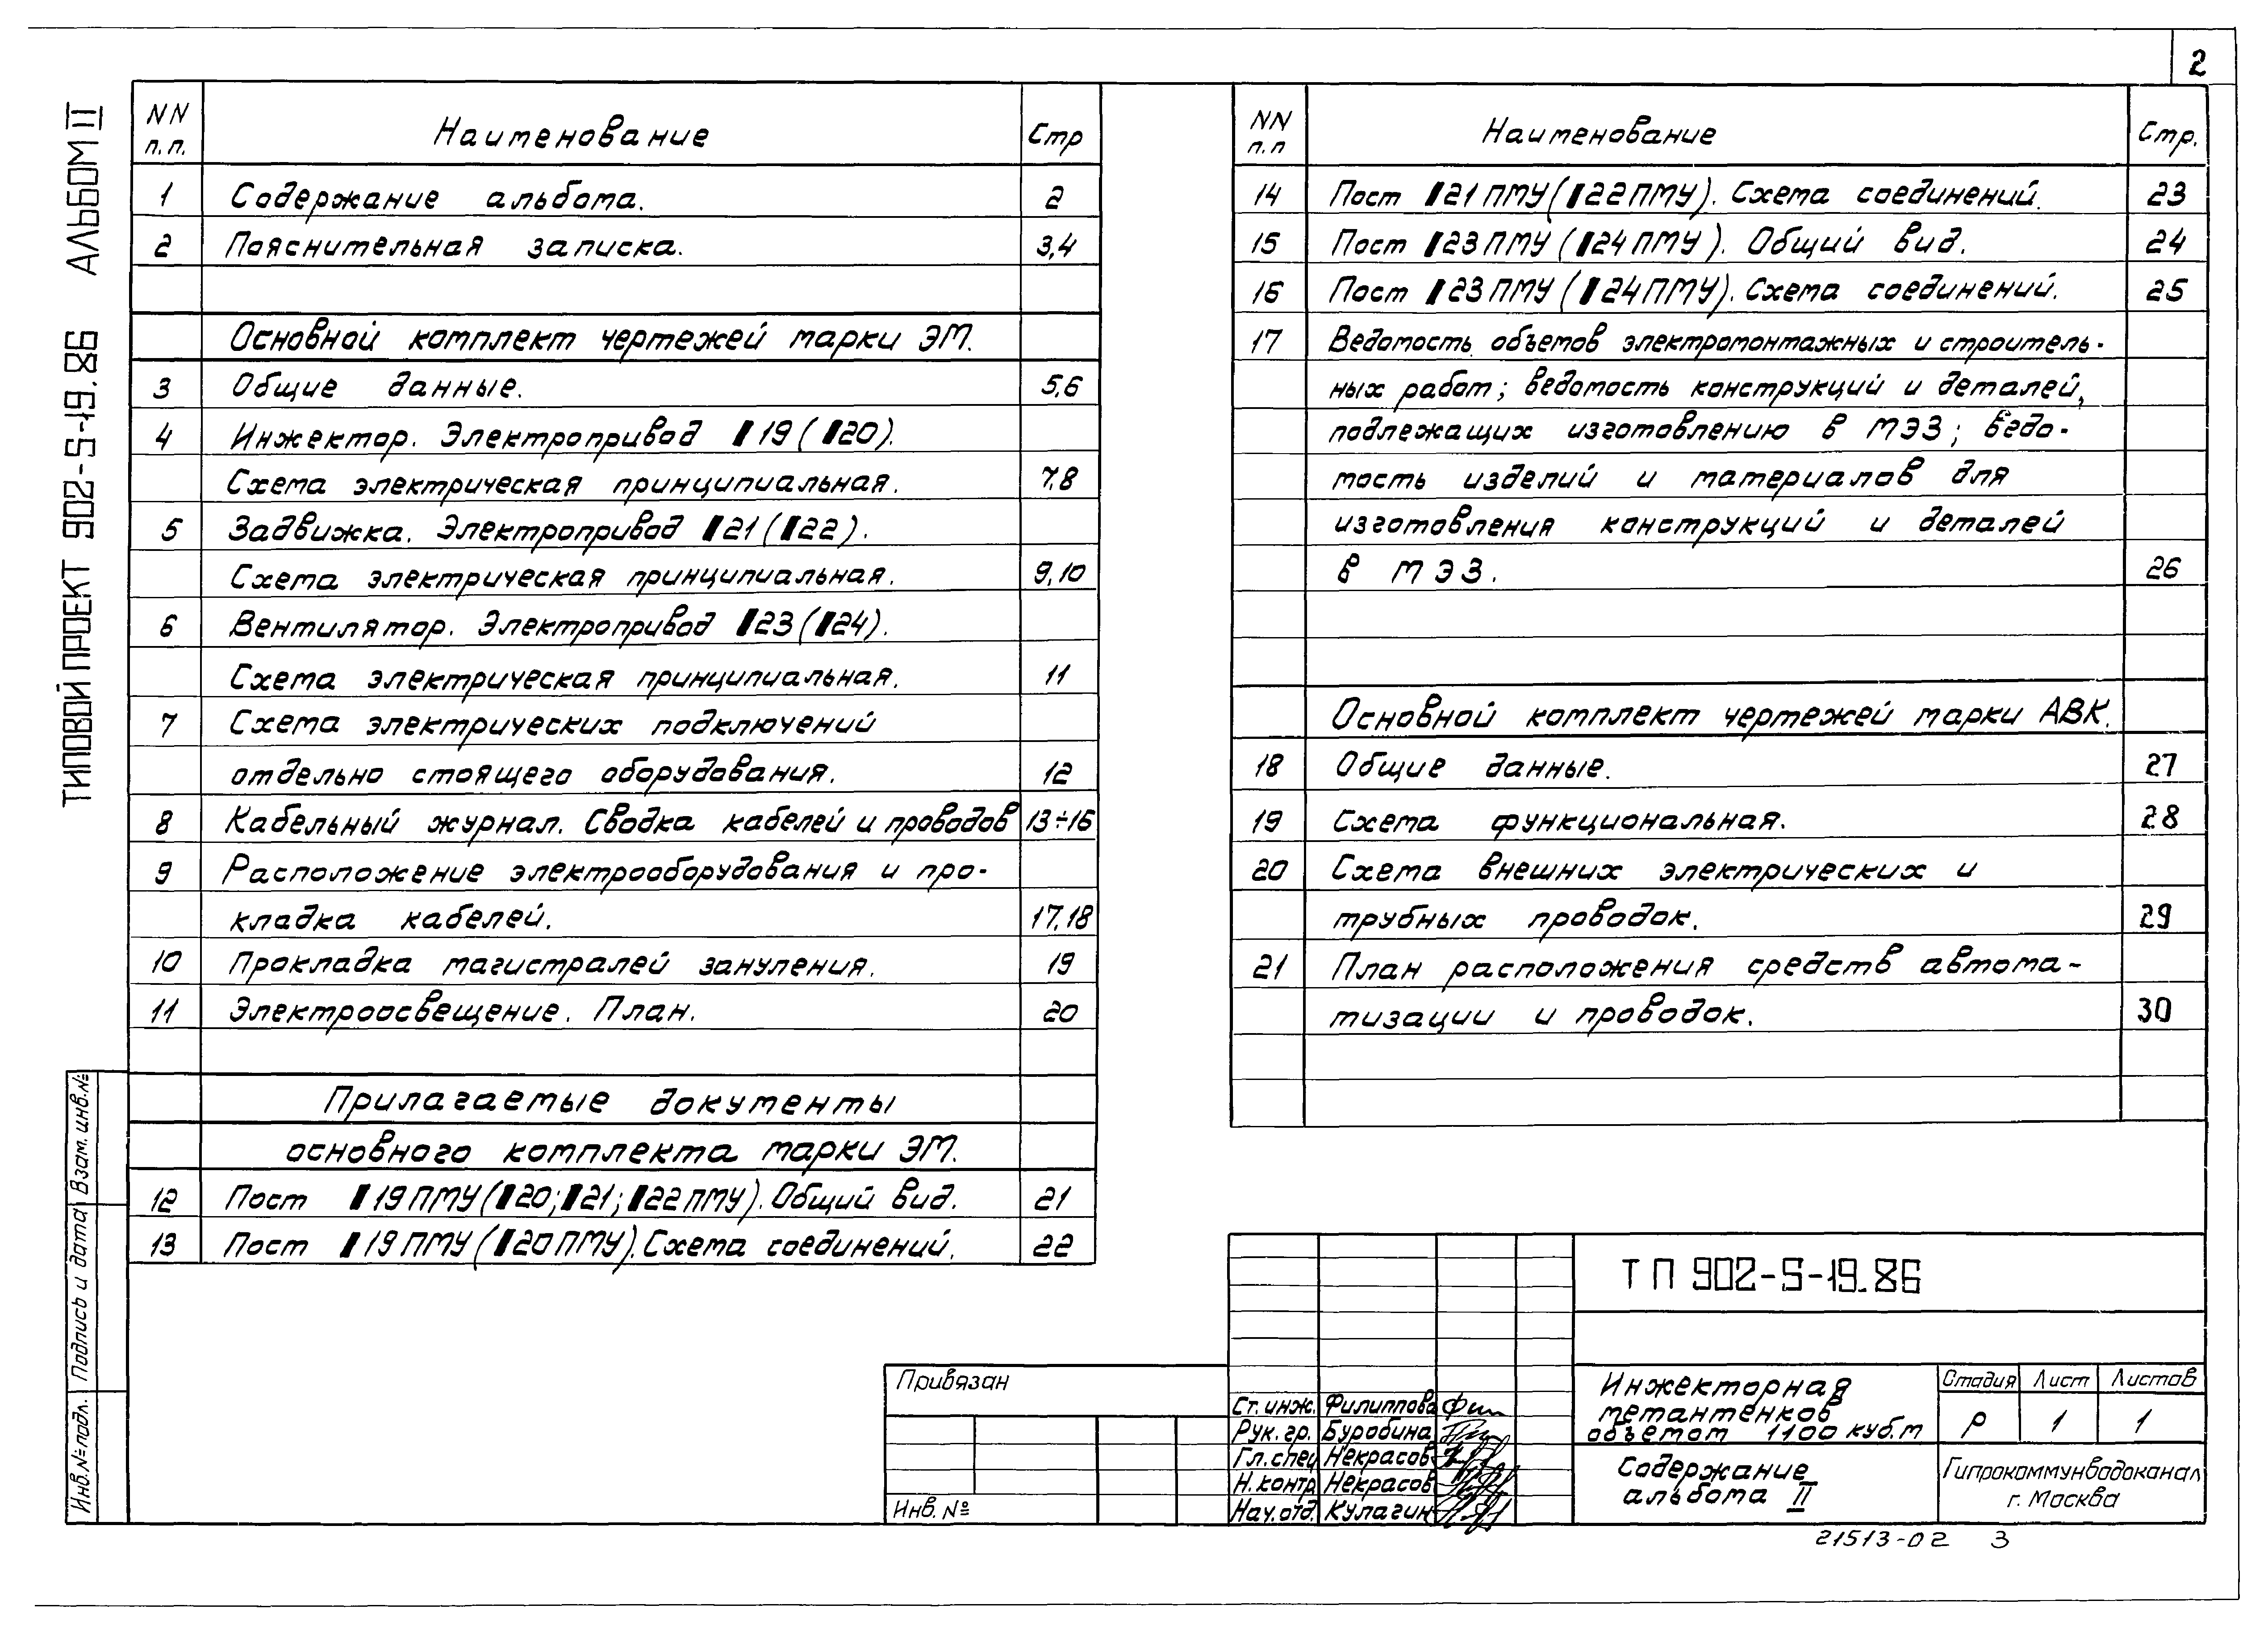 2
ТИПОВОЙ ПРОЕКТ 902-5-19.86 АЛЬБОМ II
NN п.п. Наименование Стр
1 Содержание альбома. 2
2 Пояснительная записка. 3,4
Основной комплект чертежей марки ЭМ.
3 Общие данные. 5,6
4 Инжектор. Электропривод 19 (20).
Схема электрическая принципиальная. 7,8
5 Задвижка. Электропривод 21 (22).
Схема электрическая принципиальная. 9,10
6 Вентилятор. Электропривод 23 (24).
Схема электрическая принципиальная. 11
7 Схема электрических подключений
отдельно стоящего оборудования. 12
8 Кабельный журнал. Сводка кабелей и проводов 13÷16
9 Расположение электрооборудования и про-
кладка кабелей. 17,18
10 Прокладка магистралей зануления. 19
11 Электроосвещение. План. 20
Прилагаемые документы
основного комплекта марки ЭМ.
12 Пост 19 ПМУ (20; 21; 22 ПМУ). Общий вид. 21
13 Пост 19 ПМУ (20 ПМУ). Схема соединений. 22
NN п.п Наименование Стр.
14 Пост 21 ПМУ (22 ПМУ). Схема соединений. 23
15 Пост 23 ПМУ (24 ПМУ). Общий вид. 24
16 Пост 23 ПМУ (24 ПМУ). Схема соединений. 25
17 Ведомость объемов электромонтажных и строитель-
ных работ; ведомость конструкций и деталей,
подлежащих изготовлению в МЭЗ; ведо-
мость изделий и материалов для
изготовления конструкций и деталей
в МЭЗ. 26
Основной комплект чертежей марки АВК.
18 Общие данные. 27
19 Схема функциональная. 28
20 Схема внешних электрических и
трубных проводок. 29
21 План расположения средств автома-
тизации и проводок. 30
Инв.№подл. Подпись и дата Взам.инв.№
Привязан
Инв. №
Ст.инж. Филиппова
Рук.гр. Буробина
Гл.спец Некрасов
Н.контр Некрасов
Нач.отд. Кулагин
ТП 902-5-19.86
Инжекторная
метантенков
объемом 1100 куб.м
Стадия Лист Листов
Р 1 1
Содержание
альбома II
Гипрокоммунводоканал
г. Москва
21513-02 3